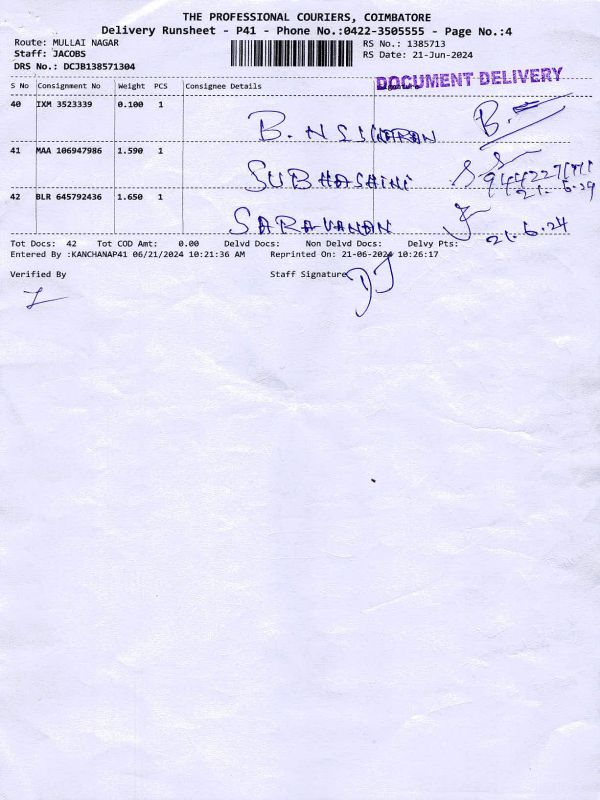 THE PROFESSIONAL COURIERS, COIMBATORE
Delivery Runsheet - P41 - Phone No.:0422-3505555 - Page No.:4
Route: MULLAI NAGAR
Staff: JACOBS
DRS No.: DCJB138571304
RS No.: 1385713
RS Date: 21-Jun-2024
DOCUMENT DELIVERY
S No Consignment No Weight PCS Consignee Details
40 IXM 3523339 0.100 1
B.
41 MAA 106947986 1.590 1
SUBHASHINI
42 BLR 645792436 1.650 1
SARAVANAN 21.6.24
Tot Docs: 42 Tot COD Amt: 0.00 Delvd Docs: Non Delvd Docs: Delvy Pts:
Entered By :KANCHANAP41 06/21/2024 10:21:36 AM Reprinted On: 21-06-2024 10:26:17
Verified By Staff Signature